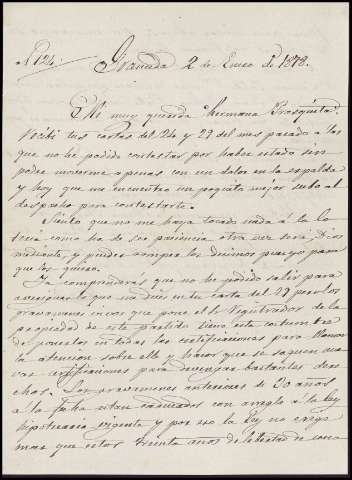 Nº 124.
Granada 2 de Enero de 1878.
Mi muy querida hermana Frasquita:
Recibí tus cartas del 24 y 29 del mes pasado a las
que no he podido contestar por haber estado sin
poder moverme apenas con un dolor en la espalda
y hoy que me encuentro un poquito mejor subo al
despacho para contestarte.
Siento que no me haya tocado nada á la lo
tería como ha de ser paciencia otra vez será Dios
mediante, y puedes romper los décimos pues yo para
que los quiero.
Ya comprenderás que no he podido salir para
averiguar lo que me dices en tu carta del 29 pero los
gravámenes esos que pone el Registrador de la
propiedad de este partido tiene esta costumbre
de ponerlos en todas las certificaciones para llamar
la atención sobre ello y hacer que se saquen nue
vas certificaciones para devengar bastantes dere
chos. Los gravámenes anteriores de 30 años
á la fecha estan caducados con arreglo á la ley
hipotecaria vigente y por eso la Ley no exige
mas que estos treinta años de libertad de